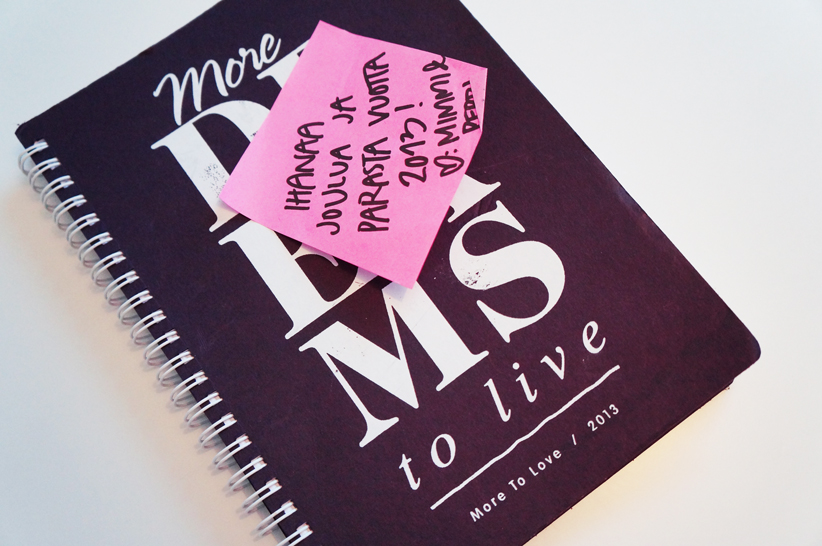 More
D
E
MS
to live
More To Love / 2013
IHANAA
JOULUA JA
PARASTA VUOTTA
2013!
♡: MIMMI &